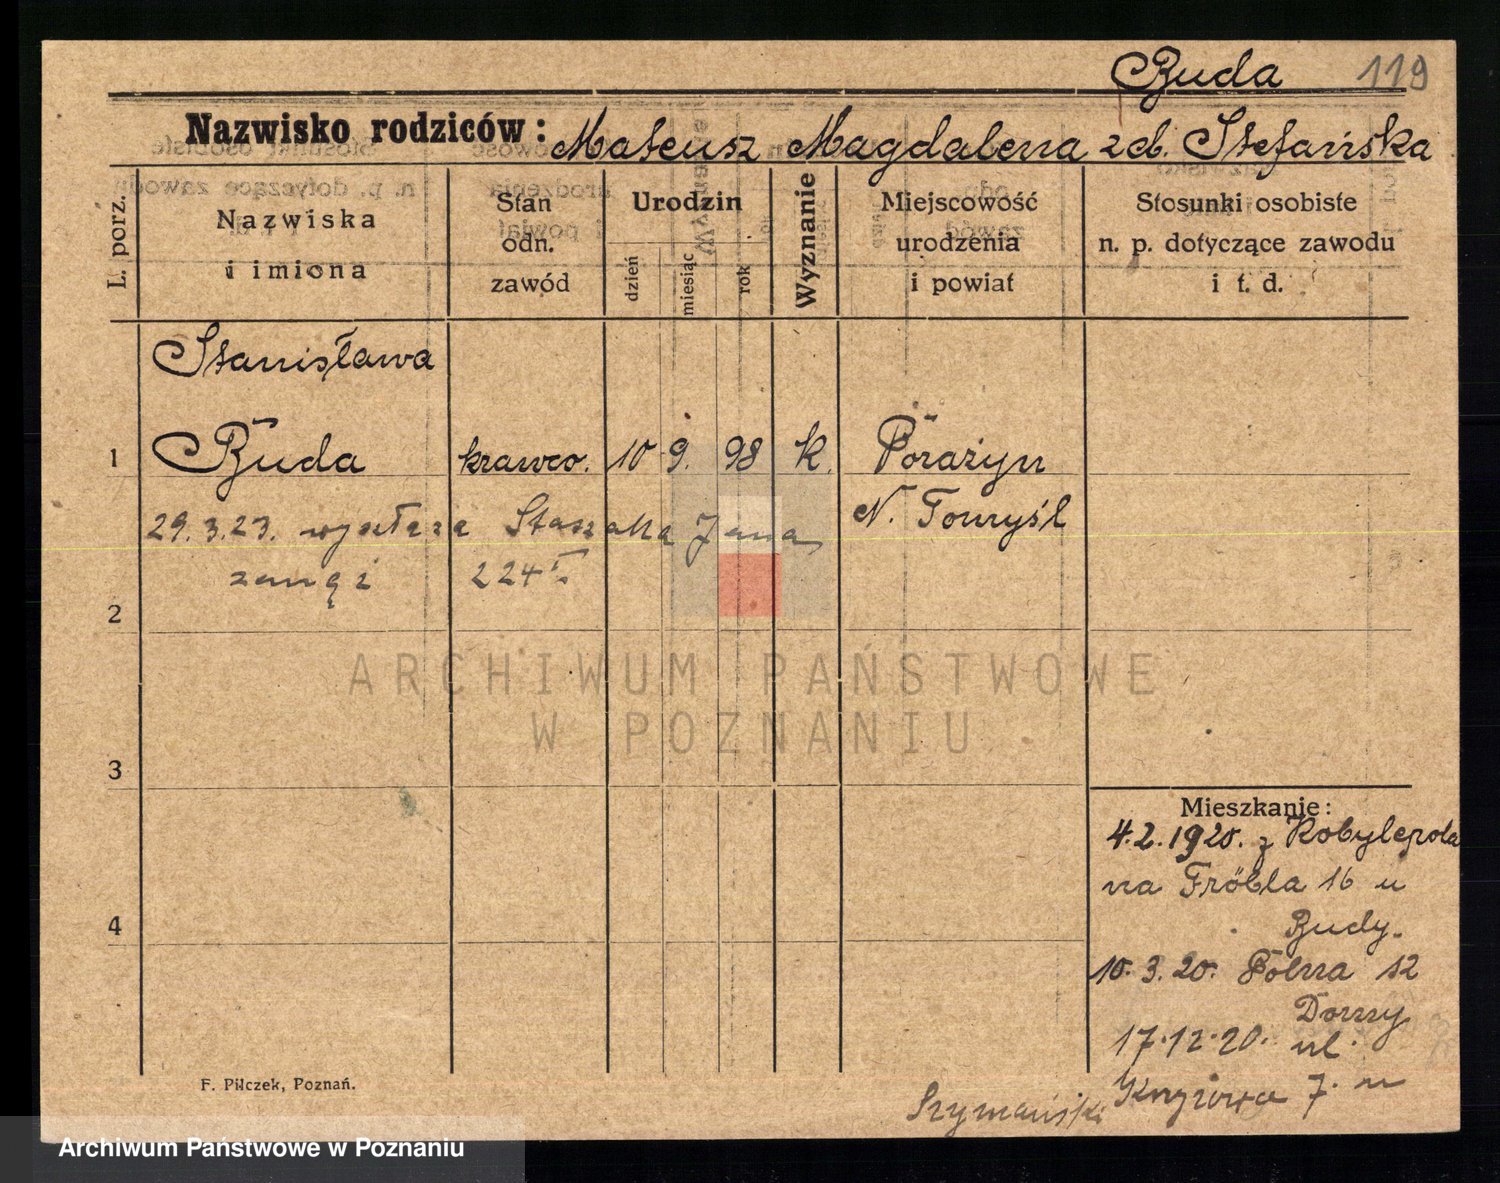 Buda 119
Nazwisko rodziców: Mateusz Magdalena zd. Stefańska
L. porz.
Nazwiska
i imiona
Stan
odn.
zawód
Urodzin
dzień
miesiąc
rok
Wyznanie
Miejscowość
urodzenia
i powiat
Stosunki osobiste
n. p. dotyczące zawodu
i t. d.
Stanisława
1 Buda krawco. 10 9. 98 k. Porażyn
N. Tomyśl
29.3.23. wyszła za Staszaka Jana
zamąż 224
2
3
4
Mieszkanie:
4.2.1920. z Kobylepola
na Fröbla 16 u
Budy.
10.3.20. Polna 12
17.12.20. ul.
7. u
Szymański
F. Pilczek, Poznań.
ARCHIWUM PAŃSTWOWE
W POZNANIU
Archiwum Państwowe w Poznaniu